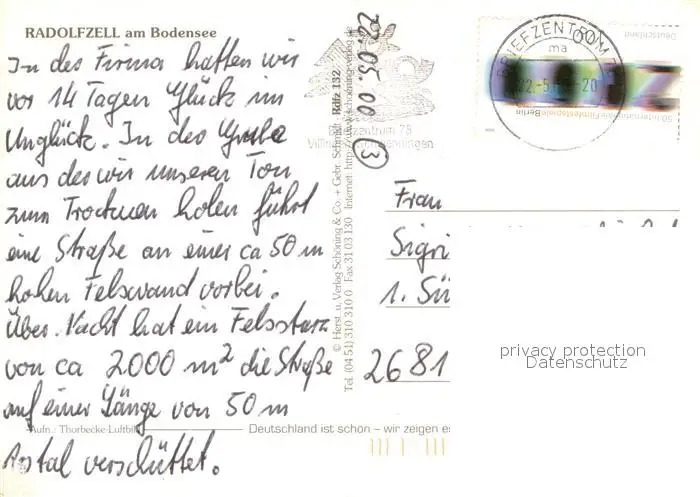 RADOLFZELL am Bodensee
In der Firma hatten wir
vor 14 Tagen Glück im
Unglück. In der Grube
aus der wir unseren Ton
zum Trocknen holen führt
eine Straße an einer ca 50 m
hohen Felswand vorbei.
Über Nacht hat ein Felssturz
von ca 2000 m² die Straße
auf einer Länge von 50 m
total verschüttet.
Aufn.: Thorbecke-Luftbild
Deutschland ist schön – wir zeigen es
22.05.00 ③
Briefzentrum 78
Villingen-Schwenningen
© Herst. u. Verlag Schöning & Co. + Gebr. Schmidt · Rdfz 132
Tel. (04 51) 310 310 0 Fax 31 03 130 Internet: http://www.schoening-verlag.de
BRIEFZENTRUM
ma
22.-5. -20
Deutschland
50 Internationale Filmfestspiele Berlin
Frau
Sigri
1. Sü
2681
privacy protection
Datenschutz